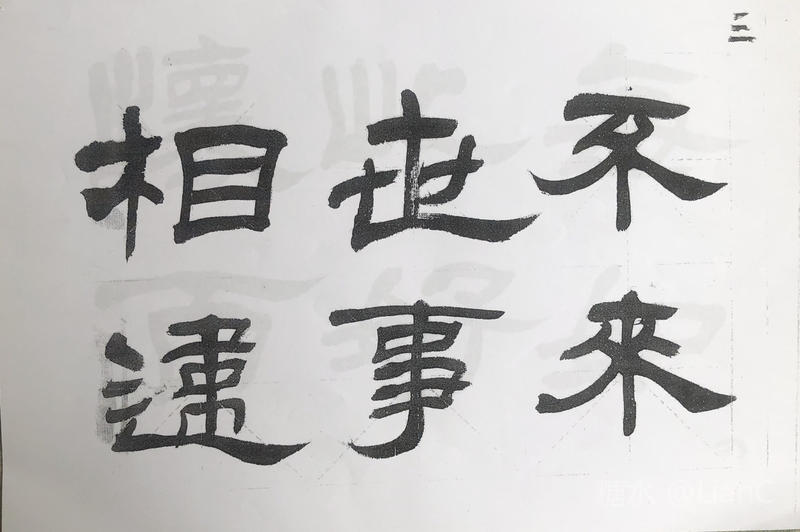 三
不來
世事
相違
糖水 @LianC